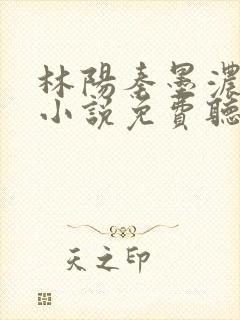 林陽秦墨濃
小說免費聽
天之印